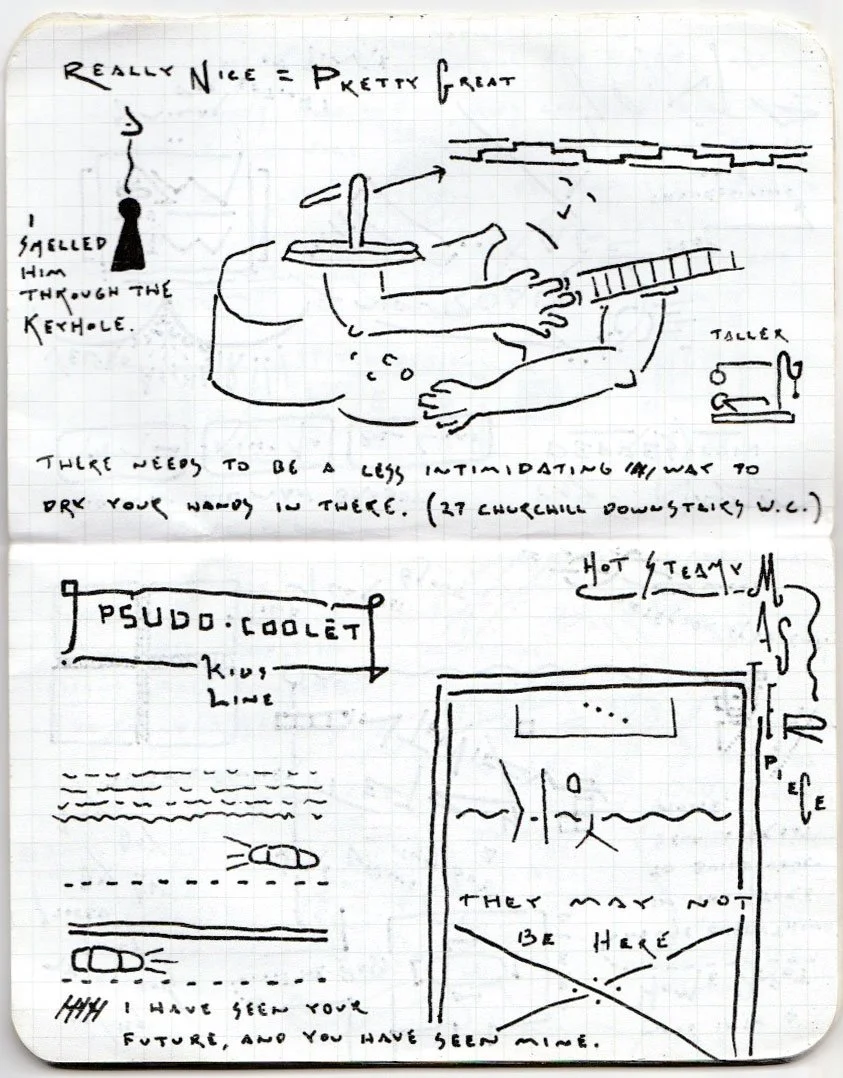 REALLY NICE = PRETTY GREAT
I
SMELLED
HIM
THROUGH THE
KEYHOLE.
TALLER
THERE NEEDS TO BE A LESS INTIMIDATING WAY TO
DRY YOUR HANDS IN THERE. (27 CHURCHILL DOWNSTAIRS W.C.)
HOT STEAMY MASTERPIECE
PSUDO·COOLET
KIDS
LINE
THEY MAY NOT
BE HERE
I HAVE SEEN YOUR
FUTURE, AND YOU HAVE SEEN MINE.